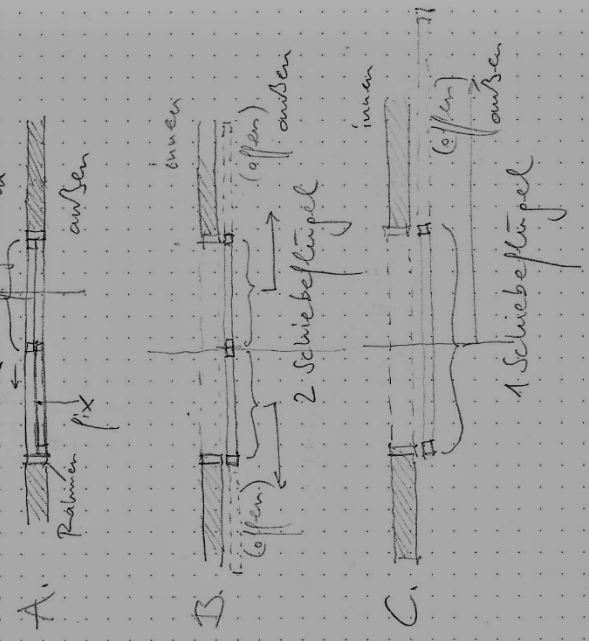 A.
Rahmen
fix
außen
B.
innen
(offen)
(offen)
außen
2 Schiebeflügel
C.
innen
(offen)
außen
1 Schiebeflügel